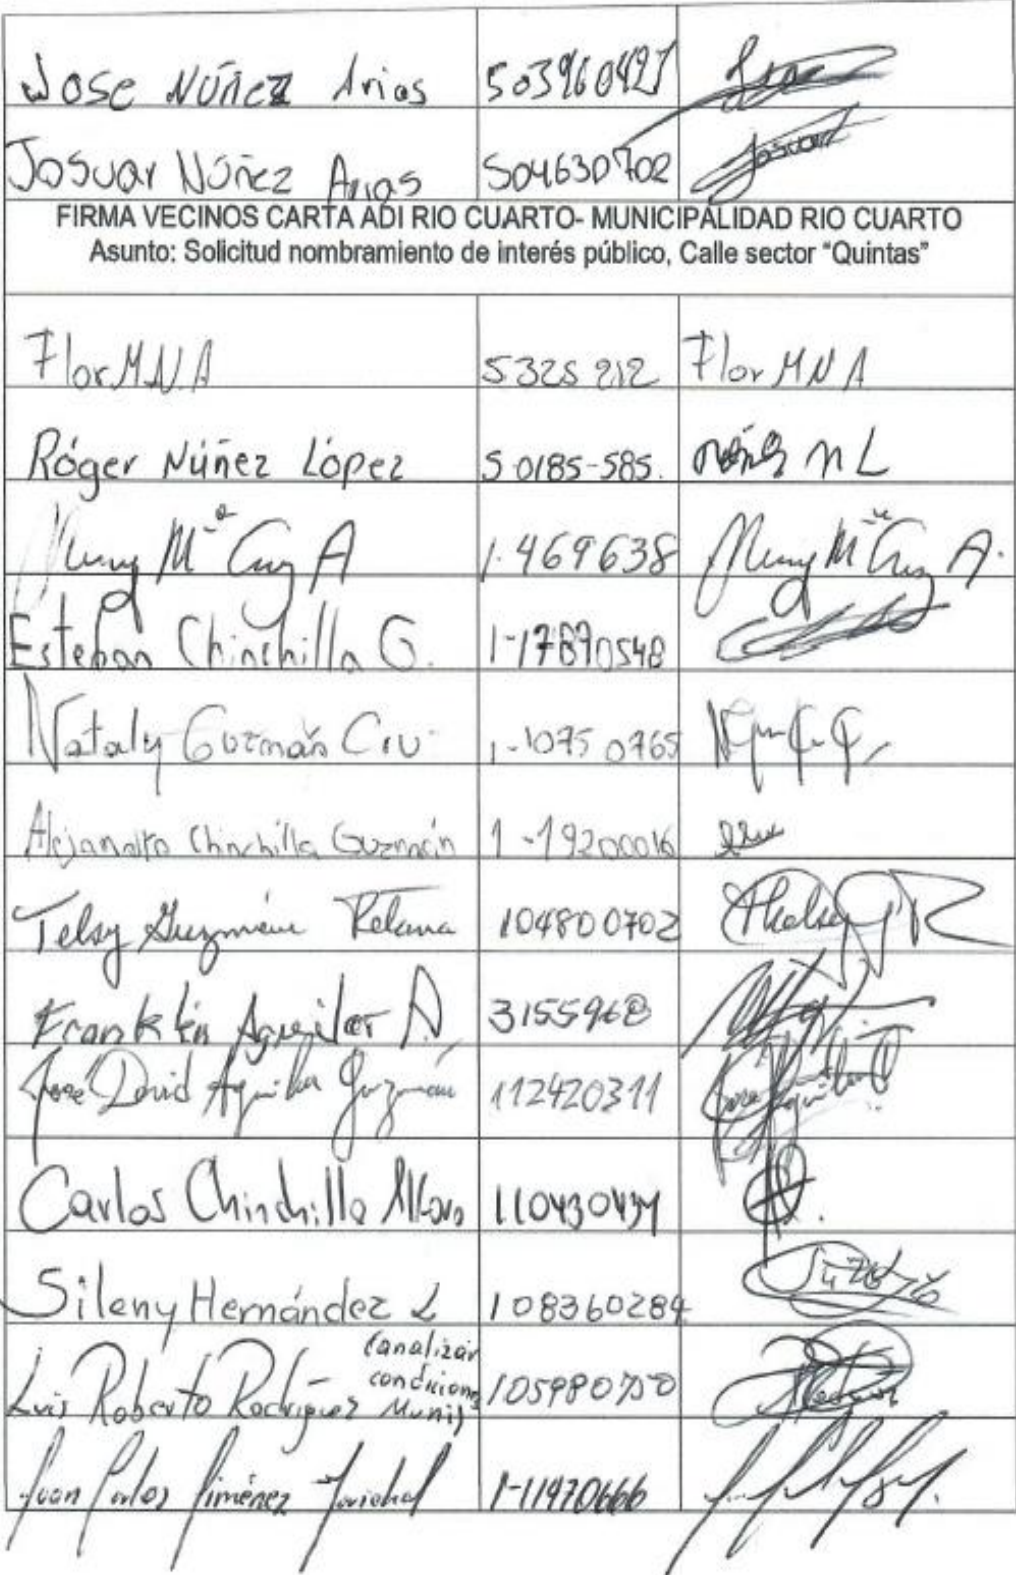 Jose Núñez Arias 503960427
Josuar Núñez Arias 504630702 Josuar
FIRMA VECINOS CARTA ADI RIO CUARTO- MUNICIPALIDAD RIO CUARTO
Asunto: Solicitud nombramiento de interés público, Calle sector "Quintas"
Flor M.N.A 5325 212 Flor M N A
Róger Núñez López 5 0185-585. N L
Mª Cruz A 1.469638 Mª Cruz A.
Esteban Chinchilla G. 1-17890548
Nataly Guzmán Cru 1-1075 0765
Alejandro Chinchilla Guzmán 1-19200016
Telsy Guzmán Retana 104800702
Franklin Aguilar A 3155968
José David Aguilar Guzmán 112420311
Carlos Chinchilla Alfaro 110430434
Sileny Hernández L 108360284
Luis Roberto Rodríguez 105980750
canalizar
condiciones
Munij
Juan Carlos Jiménez 1-11970666